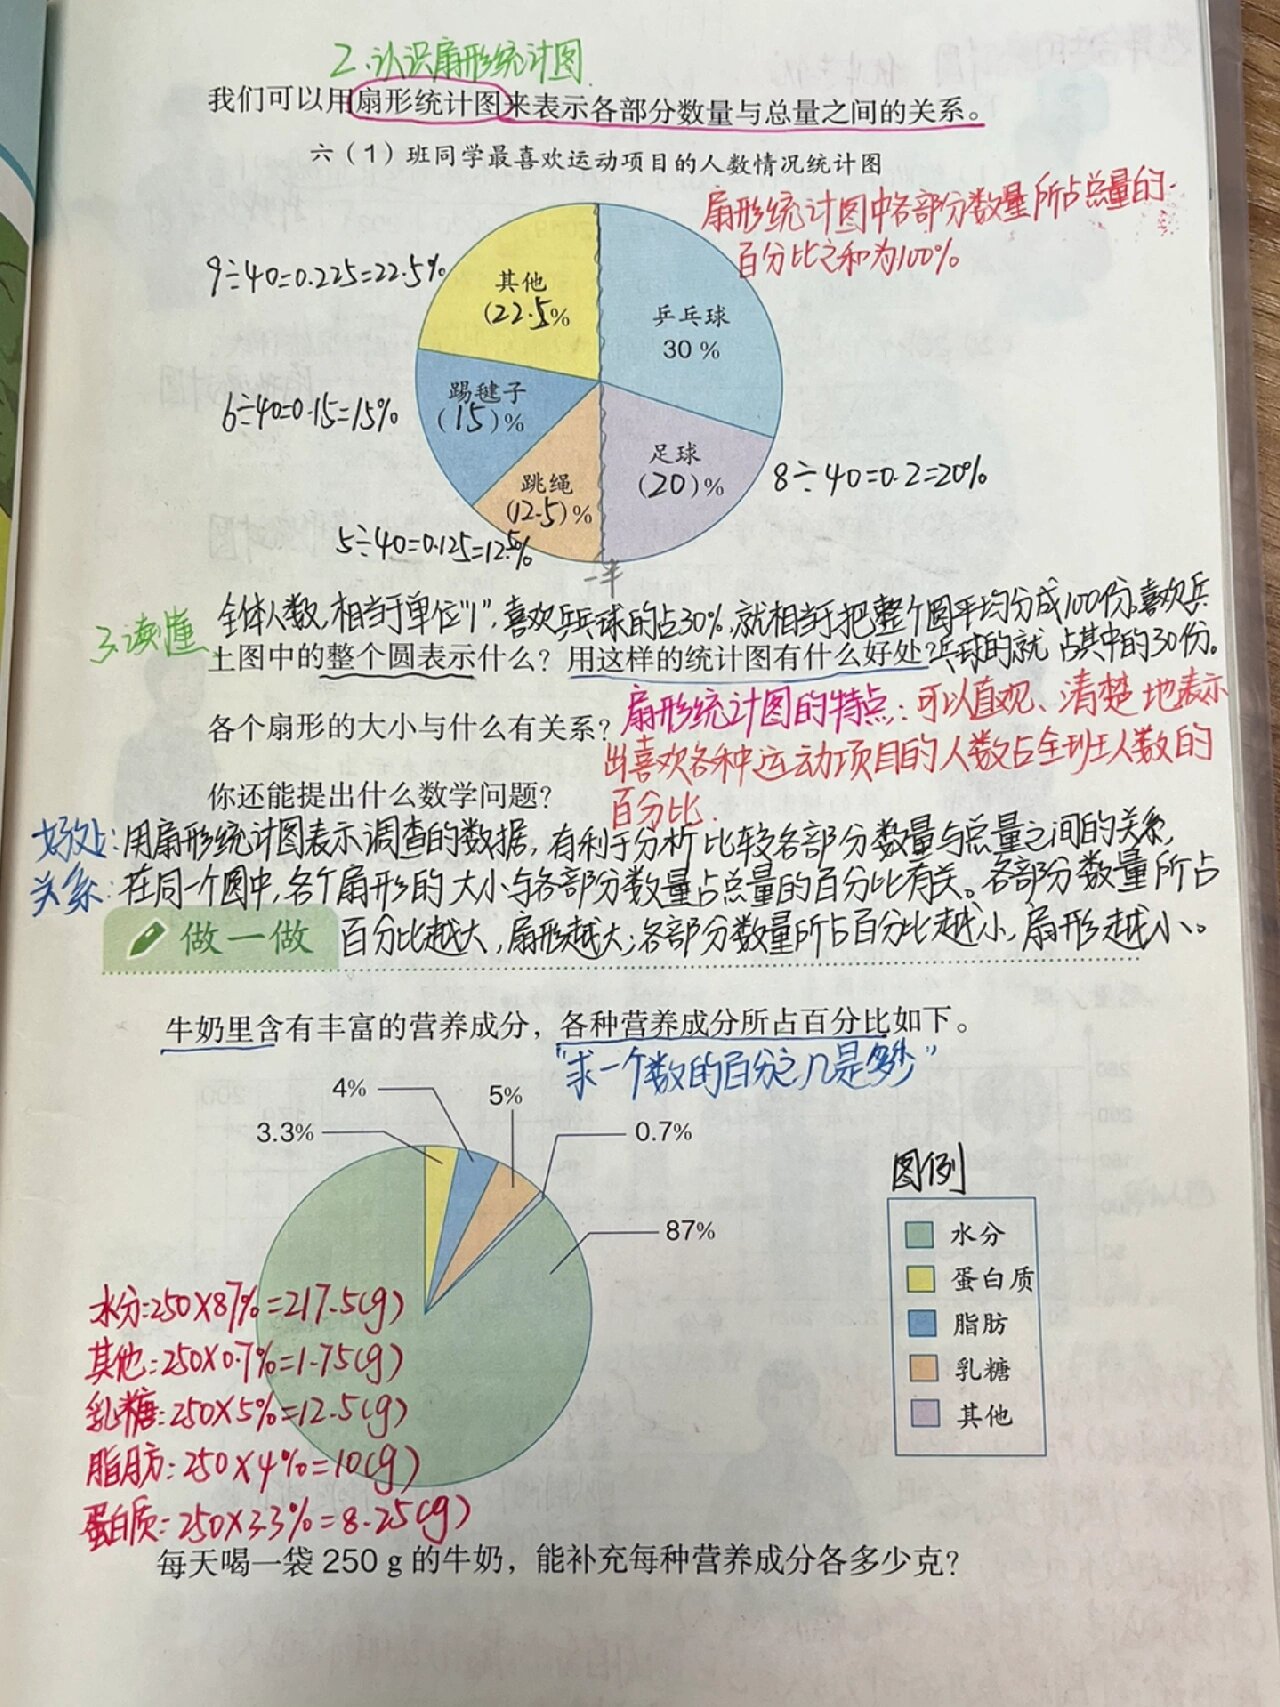 2.认识扇形统计图
我们可以用扇形统计图来表示各部分数量与总量之间的关系。
六（1）班同学最喜欢运动项目的人数情况统计图
扇形统计图中各部分数量所占总量的
百分比之和为100%
9÷40=0.225=22.5%
其他
(22.5%
乒乓球
30%
6÷40=0.15=15%
踢毽子
(15)%
足球
(20)%
8÷40=0.2=20%
跳绳
(12.5)%
5÷40=0.125=12.5%
一半
3.读懂
全体人数,相当于单位"1",喜欢乒乓球的占30%,就相当于把整个圆平均分成100份,喜欢乒
上图中的整个圆表示什么？用这样的统计图有什么好处？乓球的就占其中的30份。
各个扇形的大小与什么有关系？扇形统计图的特点：可以直观、清楚地表示
出喜欢各种运动项目的人数占全班人数的
你还能提出什么数学问题？
百分比.
好处：用扇形统计图表示调查的数据，有利于分析比较各部分数量与总量之间的关系,
关系：在同一个圆中,各个扇形的大小与各部分数量占总量的百分比有关。各部分数量所占
做一做
百分比越大,扇形越大;各部分数量所占百分比越小,扇形越小。
牛奶里含有丰富的营养成分，各种营养成分所占百分比如下。
"求一个数的百分之几是多少"
4%
5%
3.3%
0.7%
87%
图例
水分
蛋白质
脂肪
乳糖
其他
水分:250×87%=217.5(g)
其他:250×0.7%=1.75(g)
乳糖:250×5%=12.5(g)
脂肪:250×4%=10(g)
蛋白质:250×3.3%=8.25(g)
每天喝一袋 250 g 的牛奶，能补充每种营养成分各多少克？